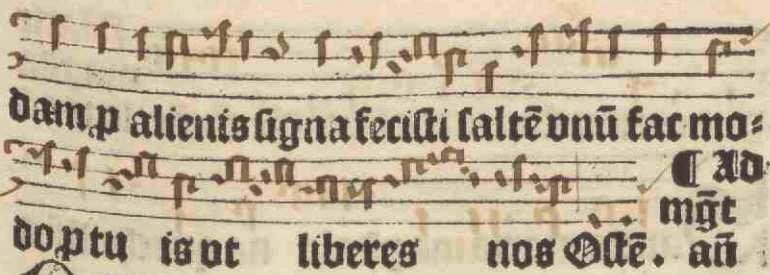 dam ꝓ alienis signa fecisti saltē vnū fac mo⸗
¶ Ad
mḡt
do ꝓ tu is vt liberes nos Ostē. añ